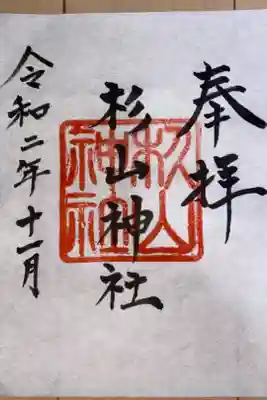 奉拝
杉山神社
杉山神社
令和二年十一月